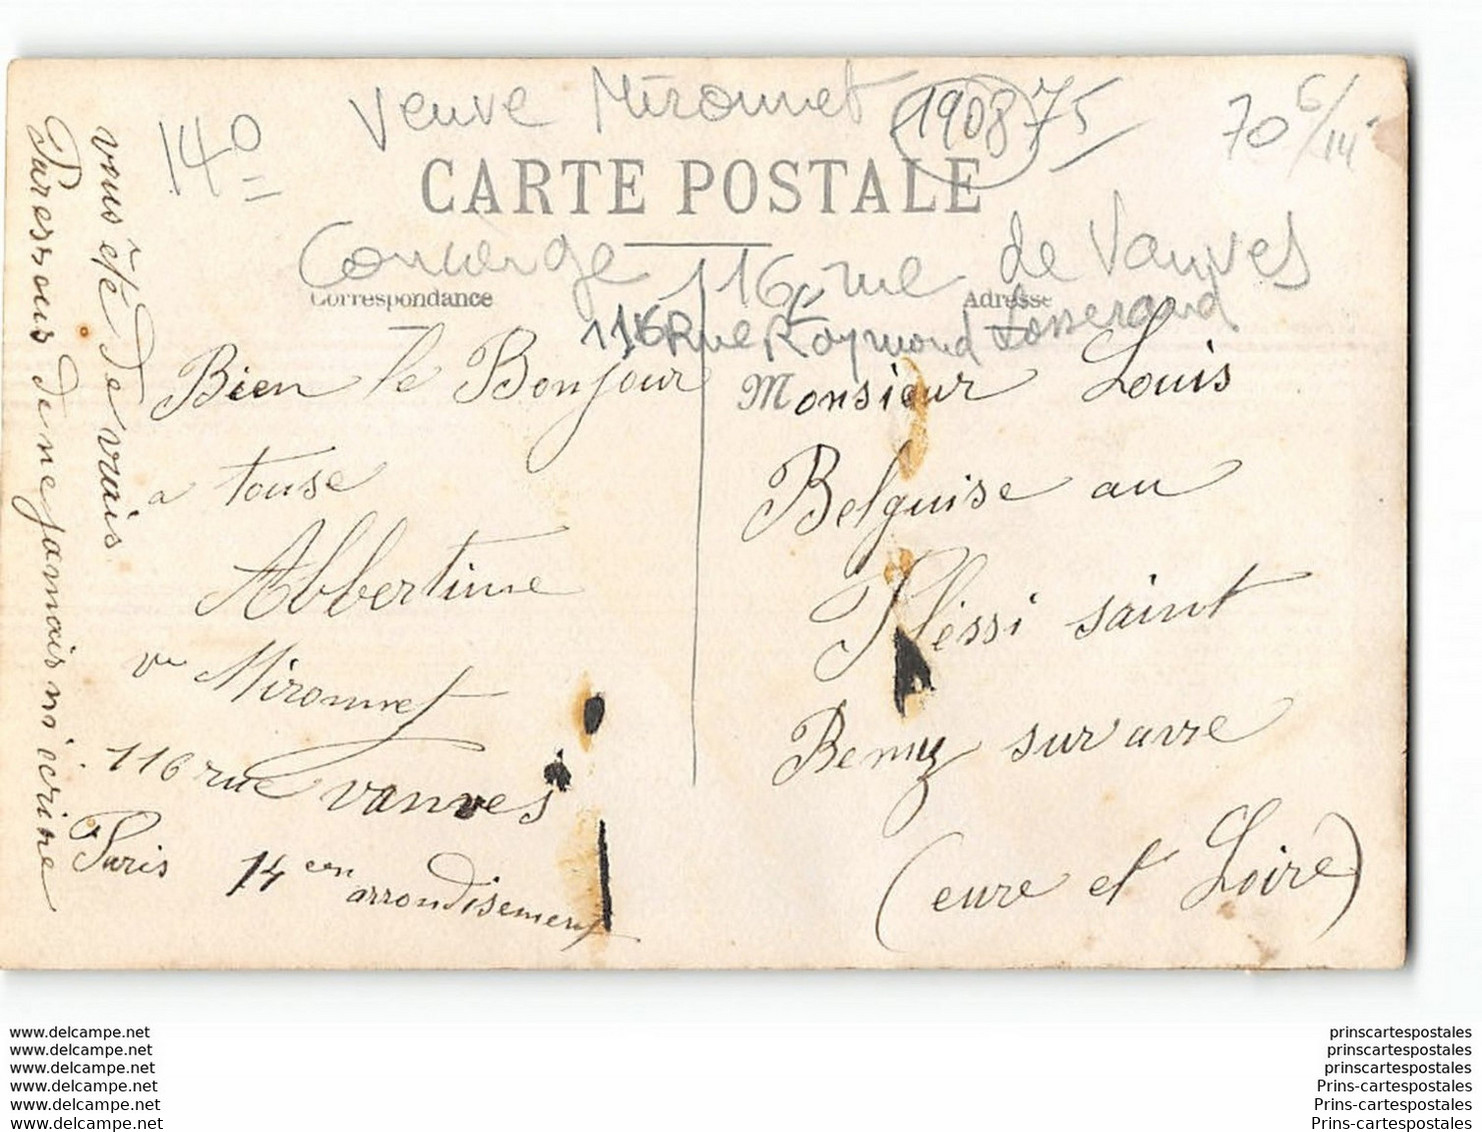 Veuve Mironnet 1908 75
14o
70 6/14
CARTE POSTALE
Concierge 116 rue de Vanves
Correspondance
Adresse
116 Rue Raymond Losserand
Bien le Bonjour
a touse
Abbertine
ve Mironnet
116 rue vanves
Paris 14 em
arrondisement
vous ête de vrais
Paressous de ne jamais m'écrire
Monsieur Louis
Belguise au
Plessi saint
Remy sur avre
(eure et Loire)
www.delcampe.net
www.delcampe.net
www.delcampe.net
www.delcampe.net
www.delcampe.net
www.delcampe.net
prinscartespostales
prinscartespostales
prinscartespostales
Prins-cartespostales
Prins-cartespostales
Prins-cartespostales